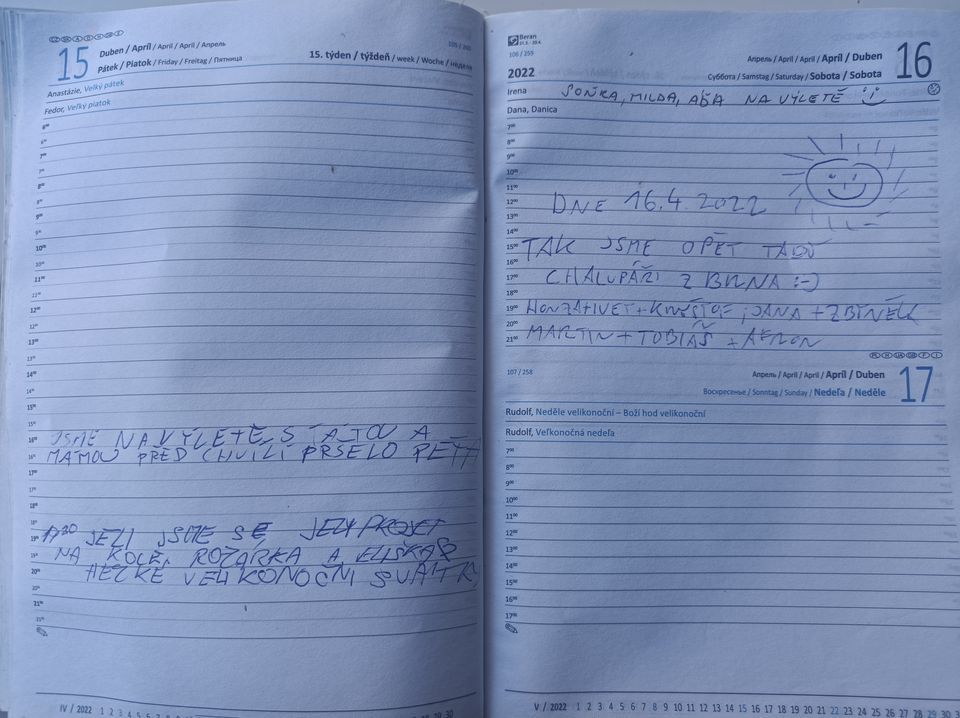 15
Duben / Apríl / April / April / Апрель
Pátek / Piatok / Friday / Freitag / Пятница
15. týden / týždeň / week / Woche / неделя
105 / 260
Anastázie, Velký pátek
Fedor, Veľký piatok
6⁰⁰
6³⁰
7⁰⁰
7³⁰
8⁰⁰
8³⁰
9⁰⁰
9³⁰
10⁰⁰
10³⁰
11⁰⁰
11³⁰
12⁰⁰
12³⁰
13⁰⁰
13³⁰
14⁰⁰
14³⁰
15⁰⁰
15³⁰
16⁰⁰ JSME NA VÝLETĚ S TÁTOU A
16³⁰ MÁMOU PŘED CHVÍLÍ PRŠELO PÉŤA
17⁰⁰
17³⁰
18⁰⁰
18³⁰
19⁰⁰ 17³⁰ JELI JSME SE JELY PROJET
19³⁰ NA KOLE, ROZÁRKA A ELIŠKA
20⁰⁰ HEZKÉ VELIKONOČNÍ SVÁTKY
20³⁰
21⁰⁰
21³⁰
IV / 2022 1 2 3 4 5 6 7 8 9 10
Beran
21.3. - 20.4.
106 / 259
2022
Апрель / April / April / Apríl / Duben
Суббота / Samstag / Saturday / Sobota / Sobota
16
Irena SOŇKA, MILDA, AŠA NA VÝLETĚ
Dana, Danica
7⁰⁰
8⁰⁰
9⁰⁰
10⁰⁰
11⁰⁰
12⁰⁰ DNE 16.4.2022
13⁰⁰
14⁰⁰
15⁰⁰ TAK JSME OPĚT TADY
16⁰⁰
17⁰⁰ CHALUPÁŘI Z BRNA :-)
18⁰⁰
19⁰⁰ HONZA+IVET+KRYŠTOF, JANA + ZBYNĚK
20⁰⁰
21⁰⁰ MARTIN + TOBIÁŠ + AERON
107 / 258
Апрель / April / April / Apríl / Duben
Воскресенье / Sonntag / Sunday / Nedeľa / Neděle
17
Rudolf, Neděle velikonoční – Boží hod velikonoční
Rudolf, Veľkonočná nedeľa
7⁰⁰
8⁰⁰
9⁰⁰
10⁰⁰
11⁰⁰
12⁰⁰
13⁰⁰
14⁰⁰
15⁰⁰
16⁰⁰
17⁰⁰
V / 2022 1 2 3 4 5 6 7 8 9 10 11 12 13 14 15 16 17 18 19 20 21 22 23 24 25 26 27 28 29 30